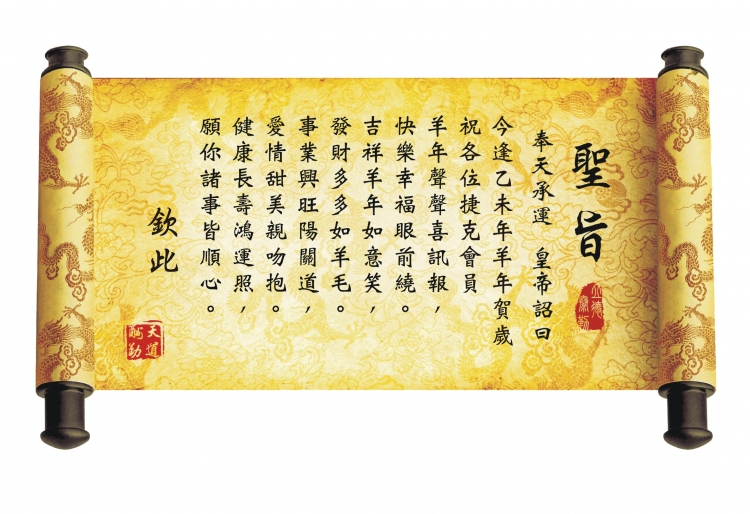 聖旨
奉天承運　皇帝詔曰
今逢乙未年羊年賀歲
祝各位捷克會員
羊年聲聲喜訊報，
快樂幸福眼前繞。
吉祥羊年如意笑，
發財多多如羊毛。
事業興旺陽關道，
愛情甜美親吻抱。
健康長壽鴻運照，
願你諸事皆順心。
欽此
天道酬勤